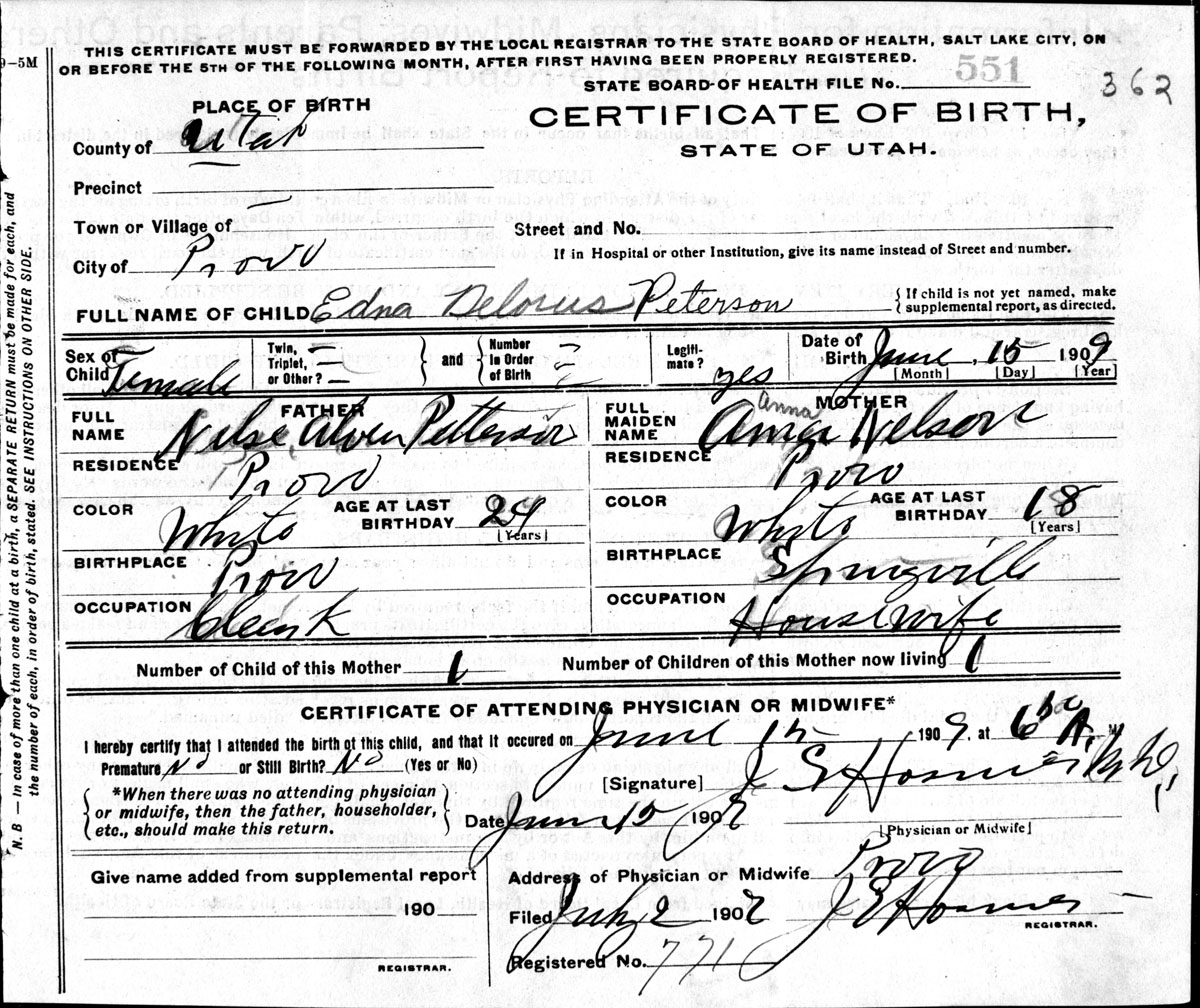 THIS CERTIFICATE MUST BE FORWARDED BY THE LOCAL REGISTRAR TO THE STATE BOARD OF HEALTH, SALT LAKE CITY, ON
9–5M OR BEFORE THE 5TH OF THE FOLLOWING MONTH, AFTER FIRST HAVING BEEN PROPERLY REGISTERED.
STATE BOARD OF HEALTH FILE No. 551 362
PLACE OF BIRTH
CERTIFICATE OF BIRTH,
County of Utah
STATE OF UTAH.
Precinct
Town or Village of
Street and No.
City of Provo
If in Hospital or other Institution, give its name instead of Street and number.
FULL NAME OF CHILD Edna Delorus Peterson
If child is not yet named, make
supplemental report, as directed.
Sex of Child Female
Twin, Triplet, or Other? and Number in Order of Birth
Legitimate? yes
Date of Birth June 15 1909
[Month] [Day] [Year
FATHER
FULL NAME Nelse Alven Petterson
RESIDENCE Provo
COLOR White AGE AT LAST BIRTHDAY 24
[Years]
BIRTHPLACE Provo
OCCUPATION Clerk
MOTHER
Anna
FULL MAIDEN NAME Nelson
RESIDENCE Provo
COLOR White AGE AT LAST BIRTHDAY 18
[Years]
BIRTHPLACE Springville
OCCUPATION Housewife
Number of Child of this Mother 1 Number of Children of this Mother now living 1
CERTIFICATE OF ATTENDING PHYSICIAN OR MIDWIFE*
I hereby certify that I attended the birth of this child, and that it occured on June 15 1909, at 6 A. M
Premature No or Still Birth? No (Yes or No)
[Signature]
*When there was no attending physician
or midwife, then the father, householder,
etc., should make this return.
Date June 15 190
[Physician or Midwife]
Give name added from supplemental report
190
REGISTRAR.
Address of Physician or Midwife Provo
Filed July 2 190
REGISTRAR.
Registered No. 771
N. B. — In case of more than one child at a birth, a SEPARATE RETURN must be made for each, and
the number of each, in order of birth, stated. SEE INSTRUCTIONS ON OTHER SIDE.